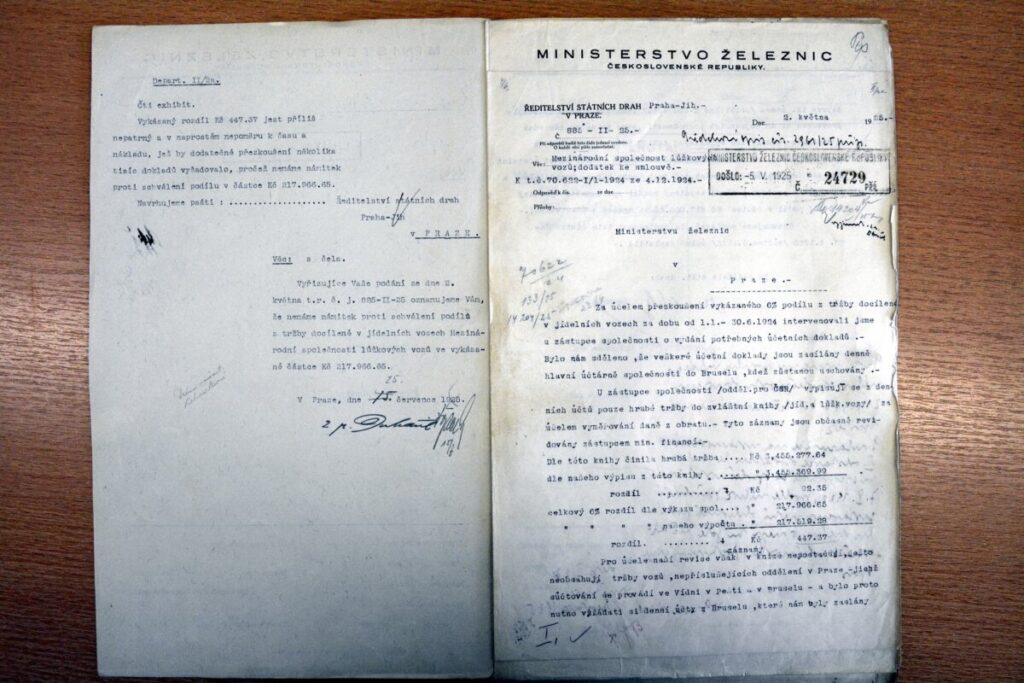 Depart. II/2a.
Čti exhibit.
Vykázaný rozdíl Kč 447.37 jest příliš
nepatrný a v naprostém nepoměru k času a
nákladu, jež by dodatečné přezkoušení několika
tisíc dokladů vyžadovalo, pročež nemáme námitek
proti schválení podílu v částce Kč 217.966.65.
Navrhujeme psáti : .................. Ředitelství státních drah
Praha-Jih
v PRAZE.
Věc: s čela.
Vyřizujíce Vaše podání ze dne 2.
května t.r. č. j. 885-II-25 oznamujeme Vám,
že nemáme námitek proti schválení podílu
z tržby docílené v jídelních vozech Meziná-
rodní společnosti lůžkových vozů ve vykáza-
né částce Kč 217.966.65.
25.
V Praze, dne 15. července 1925.
MINISTERSTVO ŽELEZNIC
ČESKOSLOVENSKÉ REPUBLIKY.
ŘEDITELSTVÍ STÁTNÍCH DRAH Praha-Jih.-
V PRAZE.
Dne 2. května 1925.-
Č. 885-II-25.-
MINISTERSTVO ŽELEZNIC ČESKOSLOVENSKÉ REPUBLIKY
DOŠLO: -5. V. 1925
Č. 24729 Příl
Věc: Mezinárodní společnost lůžkových
vozů;dodatek ke smlouvě.-
K t.č.70.622-I/1-1924 ze 4.12.1924.-
Odpověď k čís. ze dne
Přílohy:
Ministerstvu železnic
v
Praze.-
70622
133/25
Za účelem přezkoušení vykázaného 6% podílu z tržby docílené
v jídelních vozech za dobu od 1.1.- 30.6.1924 intervenovali jsme
u zástupce společnosti o vydání potřebných účetních dokladů .-
Bylo nám sděleno ,že veškeré účetní doklady jsou zasílány denně
hlavní účtárně společnosti do Bruselu ,kdež zůstanou uschovány .-
U zástupce společnosti /odděl.pro ČSR/ vypisují se z den-
ních účtů pouze hrubé tržby do zvláštní knihy /jíd.a lůžk.vozy/ za
účelem vyměřování daně z obratu.- Tyto záznamy jsou občasně revi-
dovány zástupcem min. financí.-
Dle této knihy činila hrubá tržba .... Kč 3,455.277.64
dle našeho výpisu z táto knihy ...... " 3,455.369.99
rozdíl ........... Kč 92.35
celkový 6% rozdíl dle výkazu spol.... " 217.966.65
" " " " našeho výpočtu . " 217.519.28
rozdíl. ......... Kč 447.37
záznamy
Pro účele naší revise však v knize nepostačují,ježto
neobsahují tržby vozů ,nepříslušejících oddělení v Praze -jichž
súčtování se provádí ve Vídni v Pešti a v Bruselu - a bylo proto
nutno vyžádati si denní účty z Bruselu ,které nám byly zaslány